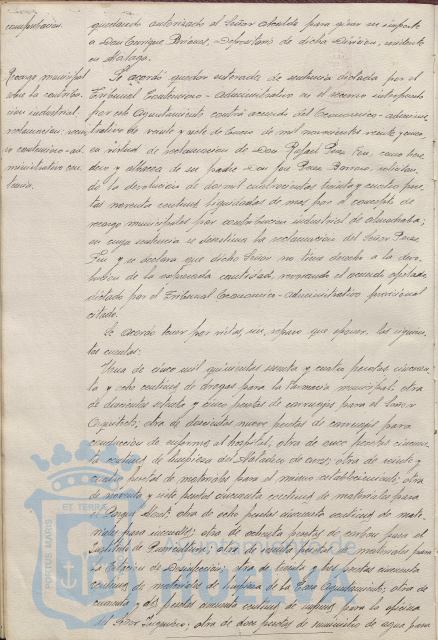 comparacion.
quedando autorizado el Señor Alcalde para girar su importe
a Don Enrique Brianes, Depositario de dicha División, residente
en Malaga.
Recargo municipal
sobre la contribu-
cion industrial:
reclamacion: recur-
so contencioso-ad-
ministrativo con-
Se acordó quedar enterados de sentencia dictada por el
Tribunal Contencioso-administrativo en el recurso interpuesto
por este Ayuntamiento contra acuerdo del Economico-adminis-
trativo de veinte y siete de Enero de mil novecientos veinte y cinco,
en virtud de reclamacion de Don Rafael Perez Feu, como here-
dero y albacea de su padre Don José Perez Barroso, solicitan-
do la devolucion de dos mil cuatrocientas treinta y cuatro pese-
tas noventa centimos liquidadas de mas por el concepto de
recargo municipal por contribucion industrial de almadraba;
en cuya sentencia se desestima la reclamacion del Señor Perez
Feu y se declara que dicho Señor no tiene derecho a la devo-
lucion de la expresada cantidad, revocando el acuerdo apelado,
dictado por el Tribunal Economico-administrativo provincial
citado.
Se acordó tener por vistas, sin reparo que oponer, las siguien-
tes cuentas:
Una de cinco mil quinientas sesenta y cuatro pesetas cincuen-
ta y ocho centimos de drogas para la Farmacia municipal; otra
de doscientas setenta y cinco pesetas de carruajes para el Señor
Arquitecto; otra de doscientas nueve pesetas de carruajes para
conduccion de enfermos al hospital; otra de once pesetas cincuen-
ta centimos de limpieza del Matadero de cerdos; otra de veinte y
cuatro pesetas de materiales para el mismo establecimiento; otra
de noventa y siete pesetas cincuenta centimos de materiales para
otra de ocho pesetas cincuenta centimos de mate-
riales para otra de ochenta pesetas de carbon para el
Instituto de Puericultura; otra de pesetas de materiales para
la Estacion de Desinfeccion; otra de treinta y tres pesetas cincuenta
centimos de materiales de limpieza de la Casa Ayuntamiento; otra de
cincuenta y dos pesetas cincuenta centimos de para la oficina
del Señor Ingeniero; otra de doce pesetas de suministro de agua para
PORTUS MARIS
ET TERRÆ
Ayuntamiento de
HUELVA